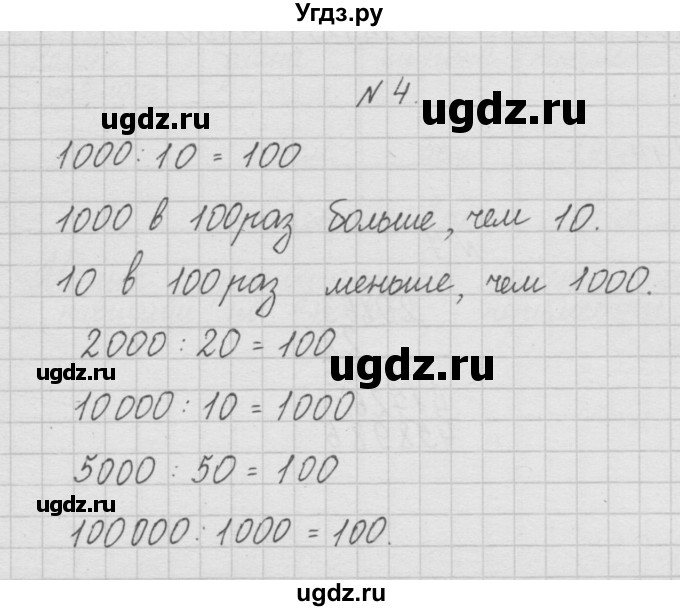 Угдз.ру
№ 4.
ugdz.ru
ugdz.ru
1000 : 10 = 100
1000 в 100 раз больше, чем 10.
10 в 100 раз меньше, чем 1000.
2000 : 20 = 100
ugdz.ru
ugdz.ru
10 000 : 10 = 1000
5000 : 50 = 100
ugdz.ru
100 000 : 1000 = 100.
ugdz.ru
ugdz.ru